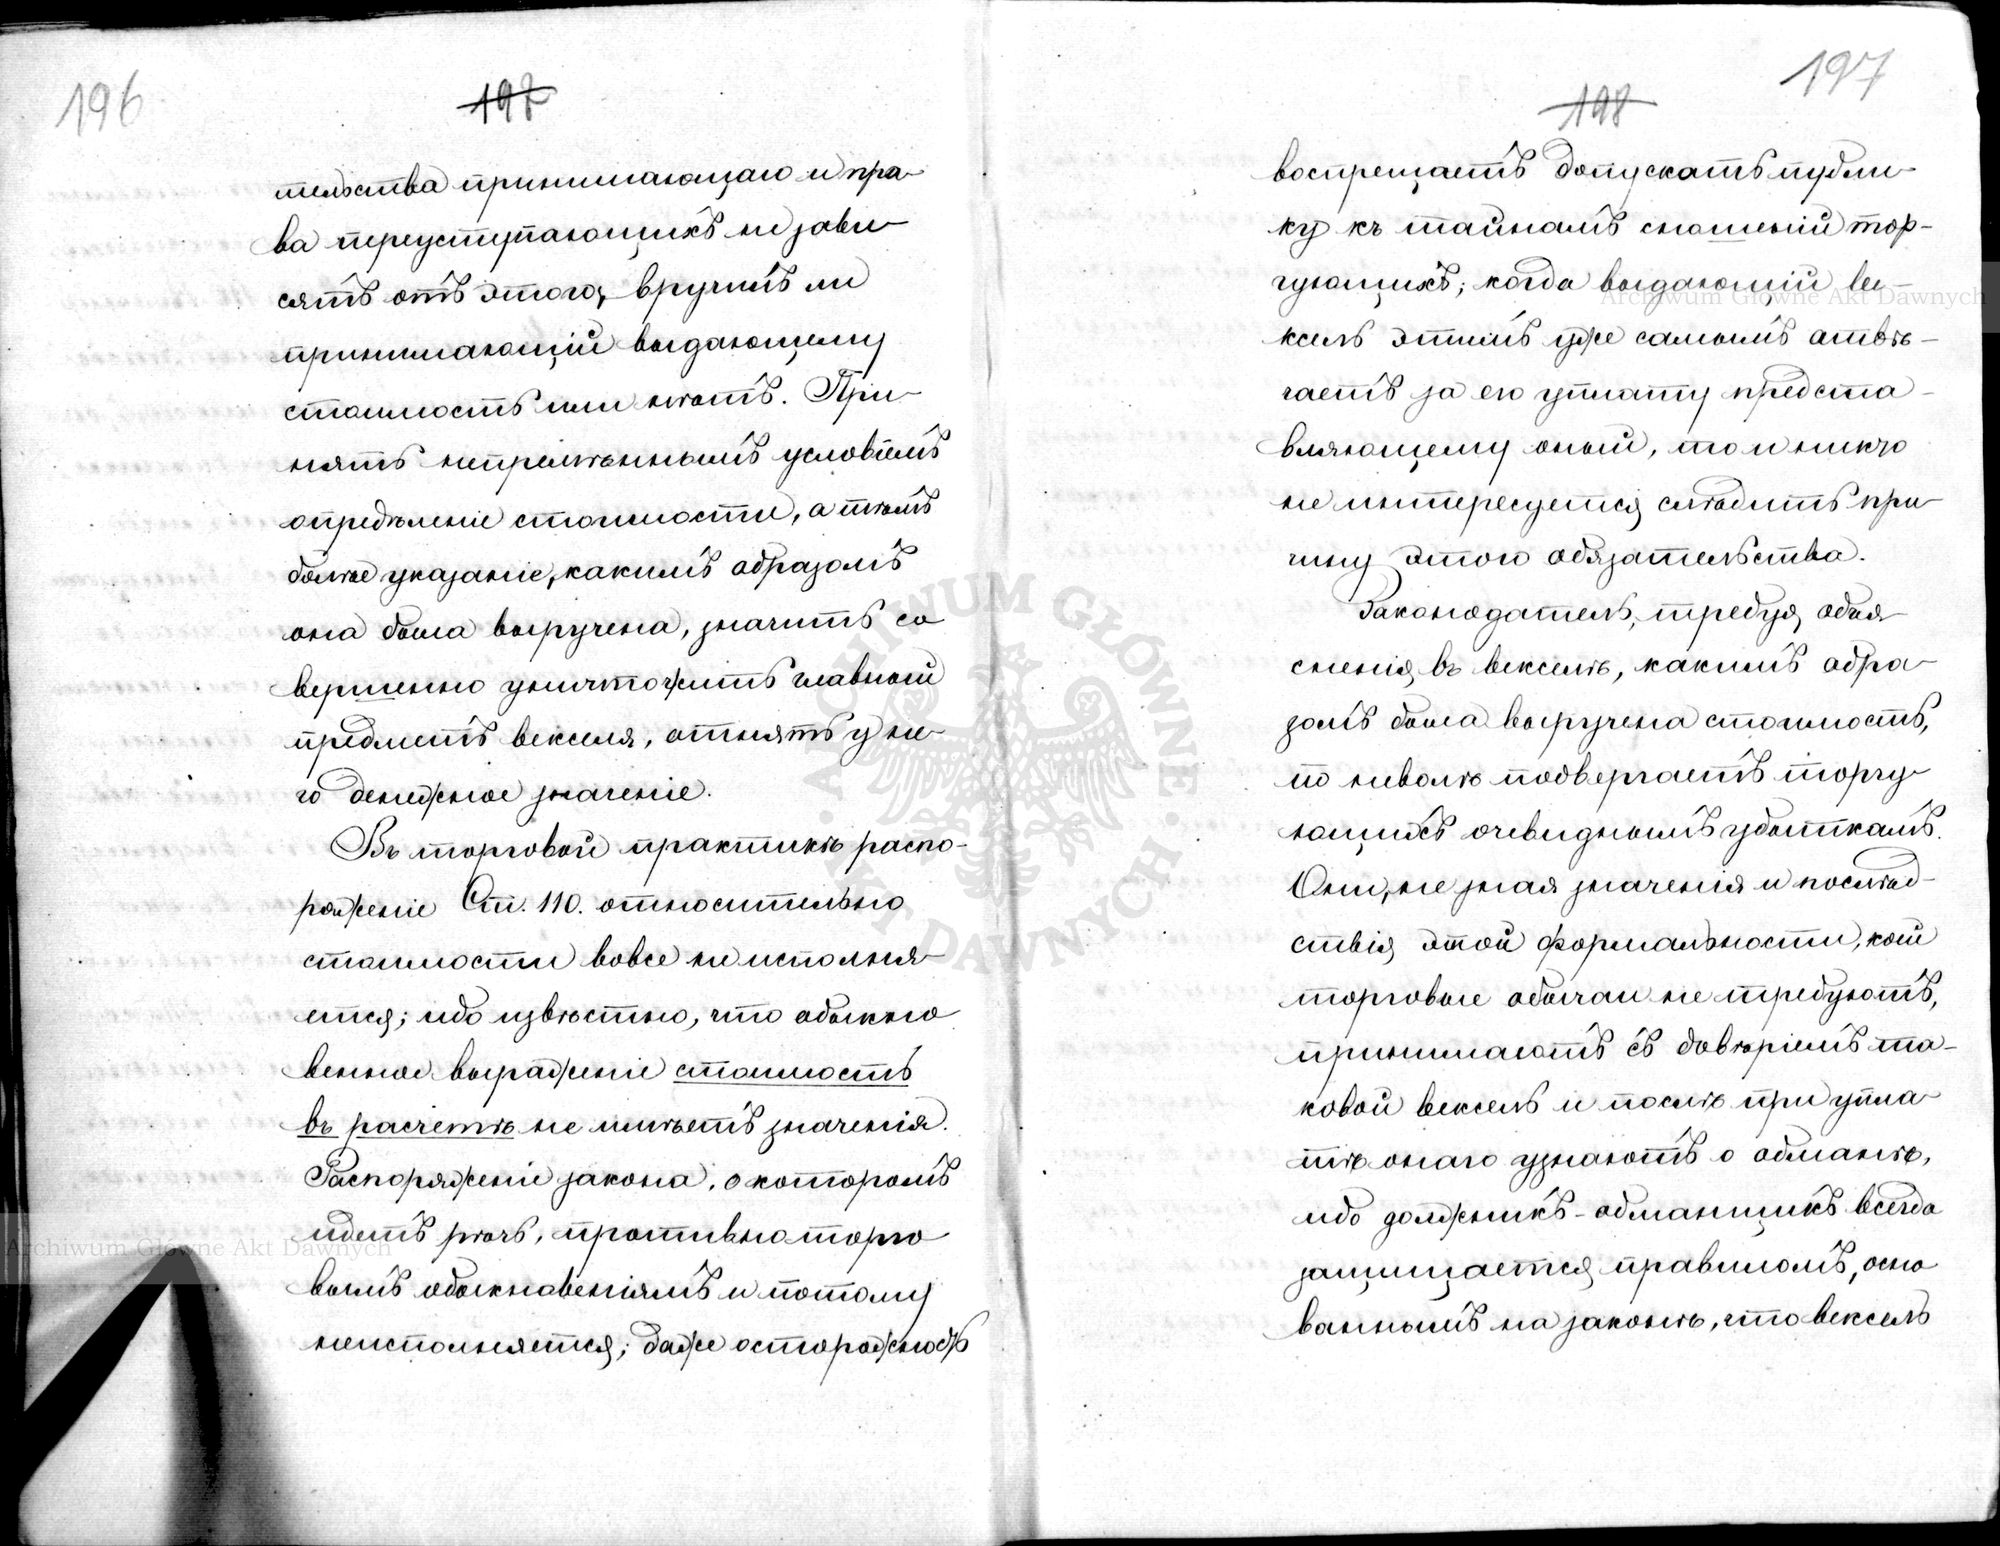 196
197
тельства принимающаго и пра-
ва переуступающихъ не зави-
сятъ отъ этого, вручилъ ли
принимающій выдающему
стоимость или нѣтъ. При-
нять непремѣннымъ условіемъ
опредѣленіе стоимости, а тѣмъ
болѣе указаніе, какимъ образомъ
она была выручена, значитъ со
вершенно уничтожить главный
предметъ векселя, отнять у не-
го денежное значеніе.
Въ торговой практикѣ распо-
ряженіе Ст. 110. относительно
стоимости вовсе не исполня-
ется; ибо извѣстно, что обыкно
венное выраженіе стоимость
въ расчетѣ не имѣетъ значенія.
Распоряженіе закона, о которомъ
идетъ рѣчь, противно торго
вымъ обыкновеніямъ и потому
неисполняется; даже осторожность
197
198
воспрещаетъ допускать публи-
ку къ тайнамъ сношеній тор-
гующихъ; когда выдающій ве-
ксель этимъ уже самымъ отвѣ-
чаетъ за его уплату предста-
вляющему оный, то и никто
не интересуется слѣдить при-
чину этого обязательства.
Законодатель, требуя, объя-
сненія, въ векселѣ, какимъ обра-
зомъ была выручена стоимость,
по неволѣ подвергаетъ торгу-
ющихъ очевиднымъ убыткамъ.
Они, не зная значенія и послѣд-
ствія этой формальности, коей
торговые обычаи не требуютъ,
принимаютъ съ довѣріемъ та-
ковой вексель и послѣ при упла-
тѣ онаго узнаютъ о обманѣ,
ибо должникъ-обманщикъ всегда
защищается правиломъ, осно
ваннымъ на законѣ, что вексель
Archiwum Główne Akt Dawnych
Archiwum Główne Akt Dawnych
ARCHIWUM GŁÓWNE AKT DAWNYCH